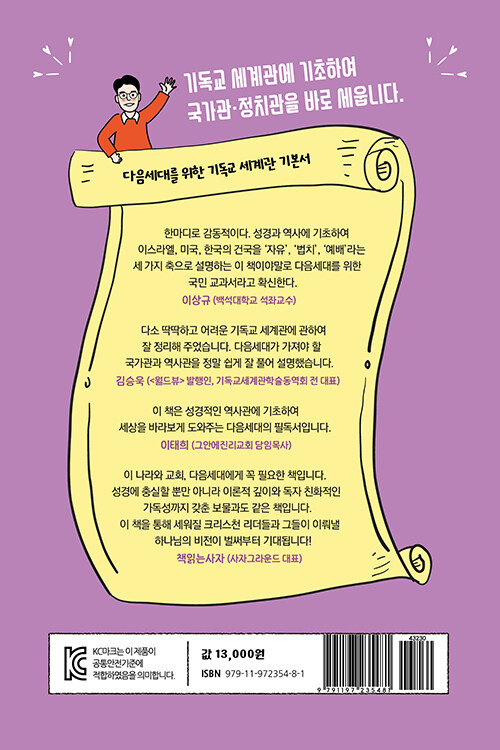 기독교 세계관에 기초하여
국가관·정치관을 바로 세웁니다.
다음세대를 위한 기독교 세계관 기본서
한마디로 감동적이다. 성경과 역사에 기초하여
이스라엘, 미국, 한국의 건국을 '자유', '법치', '예배'라는
세 가지 축으로 설명하는 이 책이야말로 다음세대를 위한
국민 교과서라고 확신한다.
이상규 (백석대학교 석좌교수)
다소 딱딱하고 어려운 기독교 세계관에 관하여
잘 정리해 주었습니다. 다음세대가 가져야 할
국가관과 역사관을 정말 쉽게 잘 풀어 설명했습니다.
김승욱 (<월드뷰> 발행인, 기독교세계관학술동역회 전 대표)
이 책은 성경적인 역사관에 기초하여
세상을 바라보게 도와주는 다음세대의 필독서입니다.
이태희 (그안에진리교회 담임목사)
이 나라와 교회, 다음세대에게 꼭 필요한 책입니다.
성경에 충실할 뿐만 아니라 이론적 깊이와 독자 친화적인
가독성까지 갖춘 보물과도 같은 책입니다.
이 책을 통해 세워질 크리스천 리더들과 그들이 이뤄낼
하나님의 비전이 벌써부터 기대됩니다!
책읽는사자 (사자그라운드 대표)
KC마크는 이 제품이
공통안전기준에
적합하였음을 의미합니다.
값 13,000원
ISBN 979-11-972354-8-1
43230
9 791197 235481